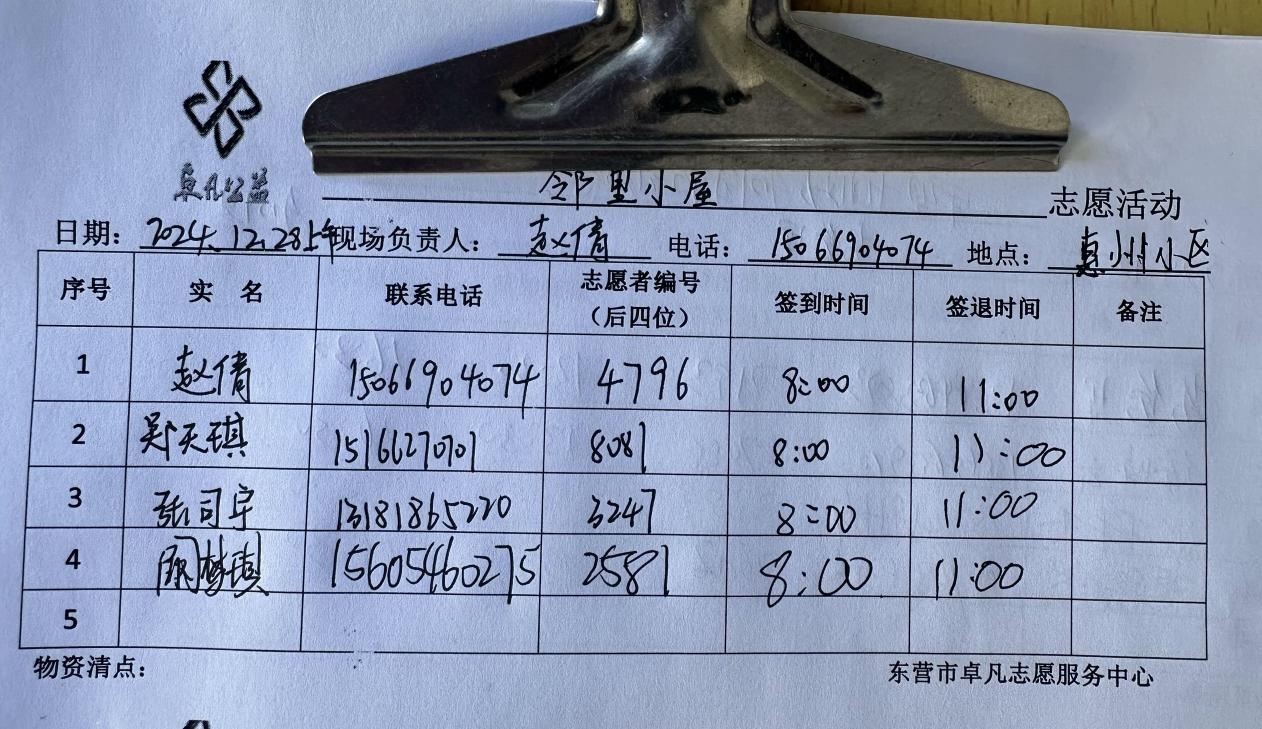 卓凡公益
邻里小屋 志愿活动
日期：2024.12.28上午 现场负责人：赵倩 电话：15066904074 地点：惠州小区
序号 实 名 联系电话 志愿者编号（后四位） 签到时间 签退时间 备注
1 赵倩 15066904074 4796 8:00 11:00
2 吴天琪 15166270701 8081 8:00 11:00
3 张司宇 13181865220 3247 8:00 11:00
4 15605460275 2581 8:00 11:00
5
物资清点： 东营市卓凡志愿服务中心